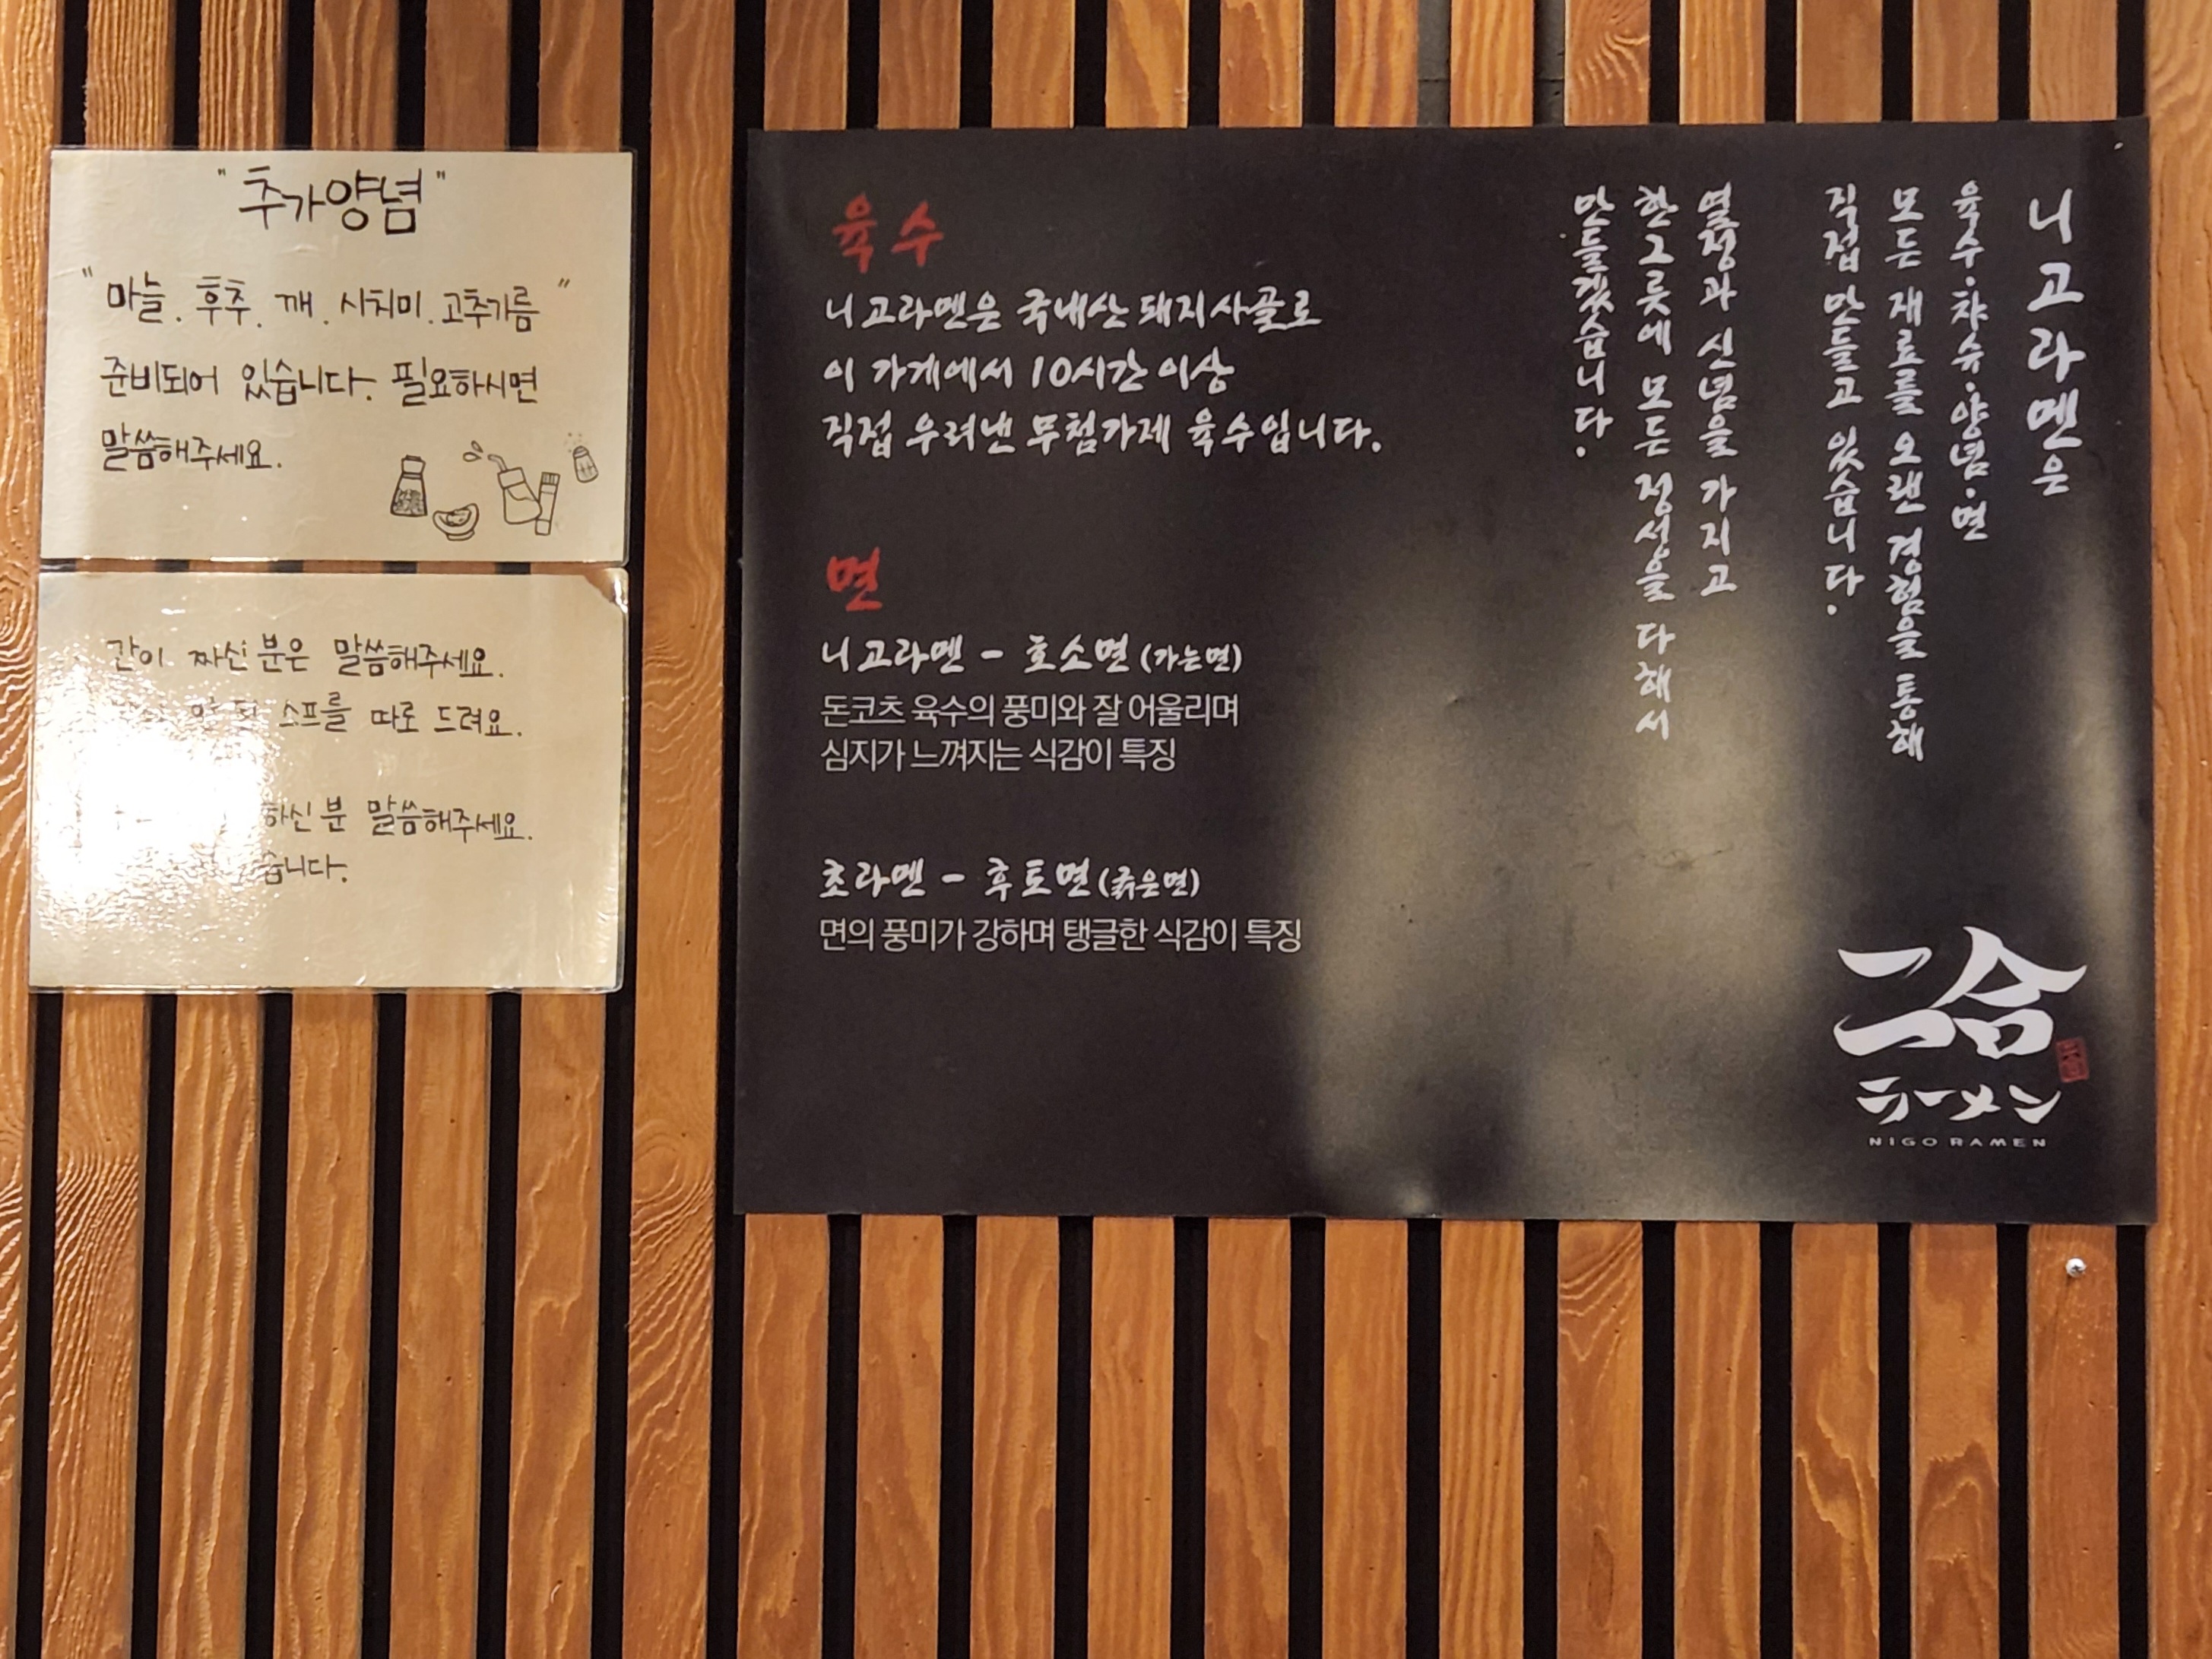 "추가양념"
"마늘. 후추. 깨. 시치미. 고추기름"
준비되어 있습니다. 필요하시면
말씀해주세요.
간이 짜신분은 말씀해주세요.
소프를 따로 드려요.
하신분 말씀해주세요.
습니다.
육수
니고라멘은 국내산 돼지사골로
이 가게에서 10시간 이상
직접 우려낸 무첨가제 육수입니다.
면
니고라멘 - 호소면(가는면)
돈코츠 육수의 풍미와 잘 어울리며
심지가 느껴지는 식감이 특징
초라멘 - 후토면(굵은면)
면의 풍미가 강하며 탱글한 식감이 특징
니고라멘은
육수·챠슈·양념·면
모든 재료를 오랜 경험을 통해
직접 만들고 있습니다.
열정과 신념을 가지고
한그릇에 모든 정성을 다해서
만들겠습니다.
ラーメン
NIGO RAMEN